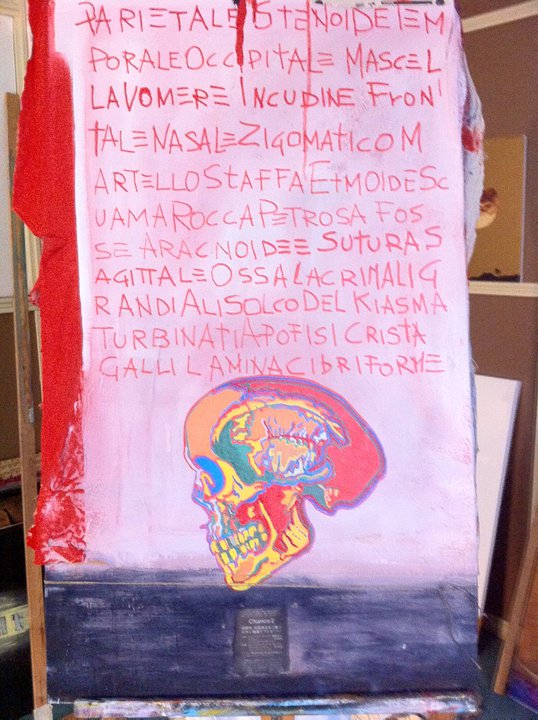 PARIETALESFENOIDETEM
PORALEOCCIPITALE MASCEL
LAVOMERE INCUDINE FRON
TALENASALEZIGOMATICOM
ARTELLOSTAFFAETMOIDESC
UAMAROCCAPETROSA FOS
SE ARACNOIDEE SUTURAS
AGITTALEOSSALACRIMALIG
RANDIALISOLCODELKIASMA
TURBINATIAPOFISICRISTA
GALLILAMINACIBRIFORME
Chance2